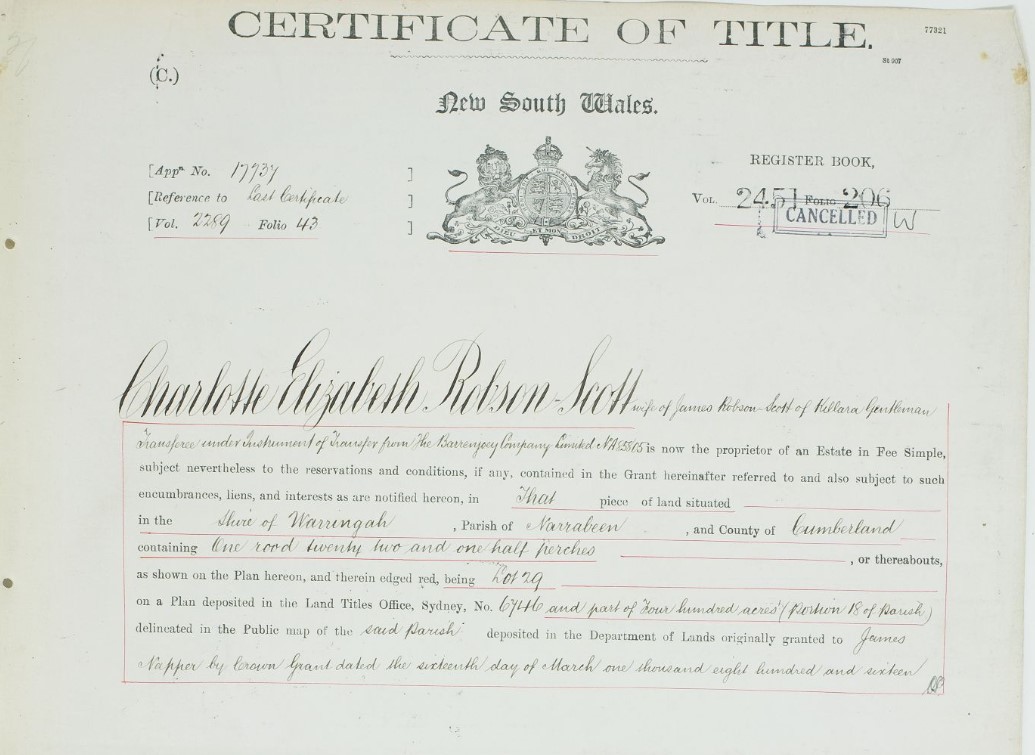 CERTIFICATE OF TITLE.
77321
St 307
(C.)
New South Wales.
[Appn. No. 17737 ]
[Reference to Last Certificate ]
[Vol. 2289 Folio 43 ]
DIEU ET MON DROIT
REGISTER BOOK,
Vol. 2451 Folio 206
CANCELLED
W
Charlotte Elizabeth Robson-Scott wife of James Robson-Scott of Killara Gentleman
Transferee under Instrument of Transfer from The Barrenjoey Company Limited No. is now the proprietor of an Estate in Fee Simple,
subject nevertheless to the reservations and conditions, if any, contained in the Grant hereinafter referred to and also subject to such
encumbrances, liens, and interests as are notified hereon, in That piece of land situated
in the Shire of Warringah , Parish of Narrabeen , and County of Cumberland
containing One rood twenty two and one half perches , or thereabouts,
as shown on the Plan hereon, and therein edged red, being Lot 29
on a Plan deposited in the Land Titles Office, Sydney, No. 6746 and part of Four hundred acres (Portion 18 of Parish)
delineated in the Public map of the said Parish deposited in the Department of Lands originally granted to James
Napper by Crown Grant dated the sixteenth day of March one thousand eight hundred and sixteen